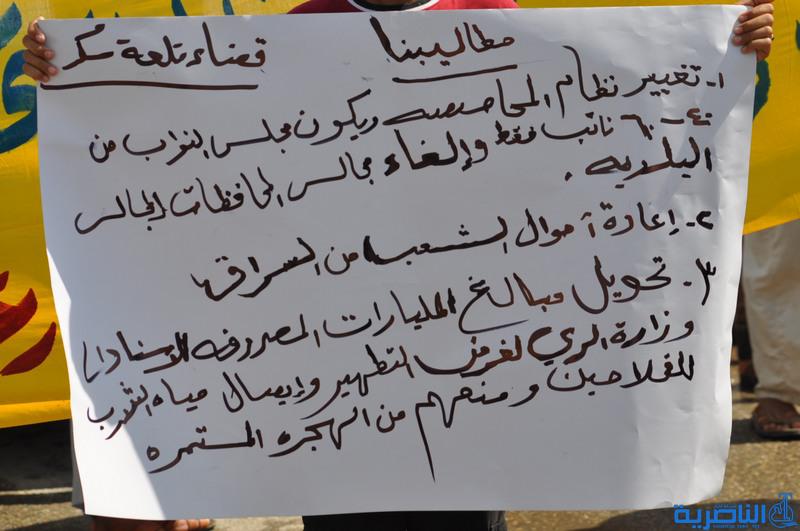 مطاليبنا
قضاء تلعة سكر
١- تغيير نظام المحاصصه ويكون مجلس النواب من
٤٠-٦٠ نائب فقط وإلغاء مجالس المحافظات المجالس
البلديه .
٢- إعادة أموال الشعب من السراق
٣- تحويل مبالغ المليارات المصروفه
وزارة الري لغرض التطهير وإيصال مياه الشرب
للفلاحين ومنعهم من الهجره المستمره
الناصرية